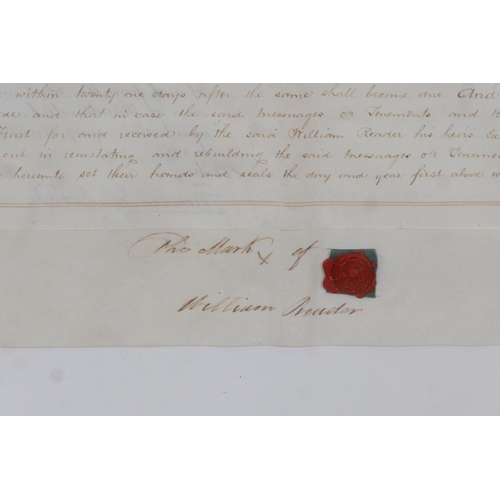 within twenty one days after the same shall become due And
and that in case the said messuages or Tenements and
for and received by the said William Reader his heirs
out in reinstating and rebuilding the said messuages or
hereunto set their hands and seals the day and year first above
The Mark x of
William Reader